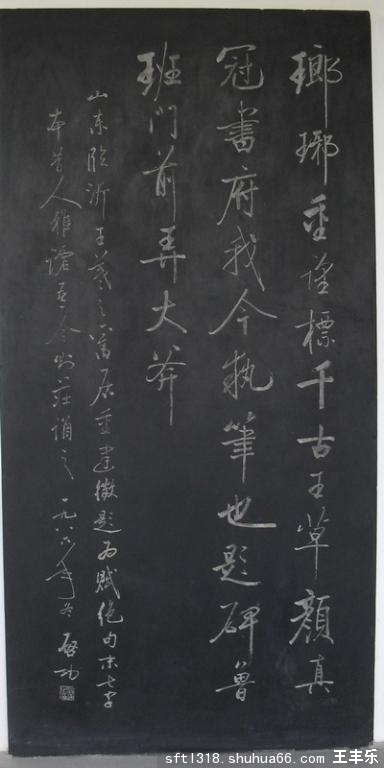 瑯琊重標千古王草顏真
冠書府我今執筆也題碑魯
班門前弄大斧
山東臨沂王羲之舊居重建徵題為賦絕句末七字
本昔人雅謔吾今則莊誦之一九八六年冬 啟功
sftl318.shuhua66.com 王丰乐